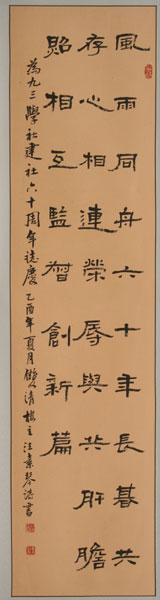 風雨同舟六十年長朞共
存心相連榮辱與共肝膽
照相互監督創新篇
為九三學社建社六十周年誌慶乙酉年夏月清樓主書